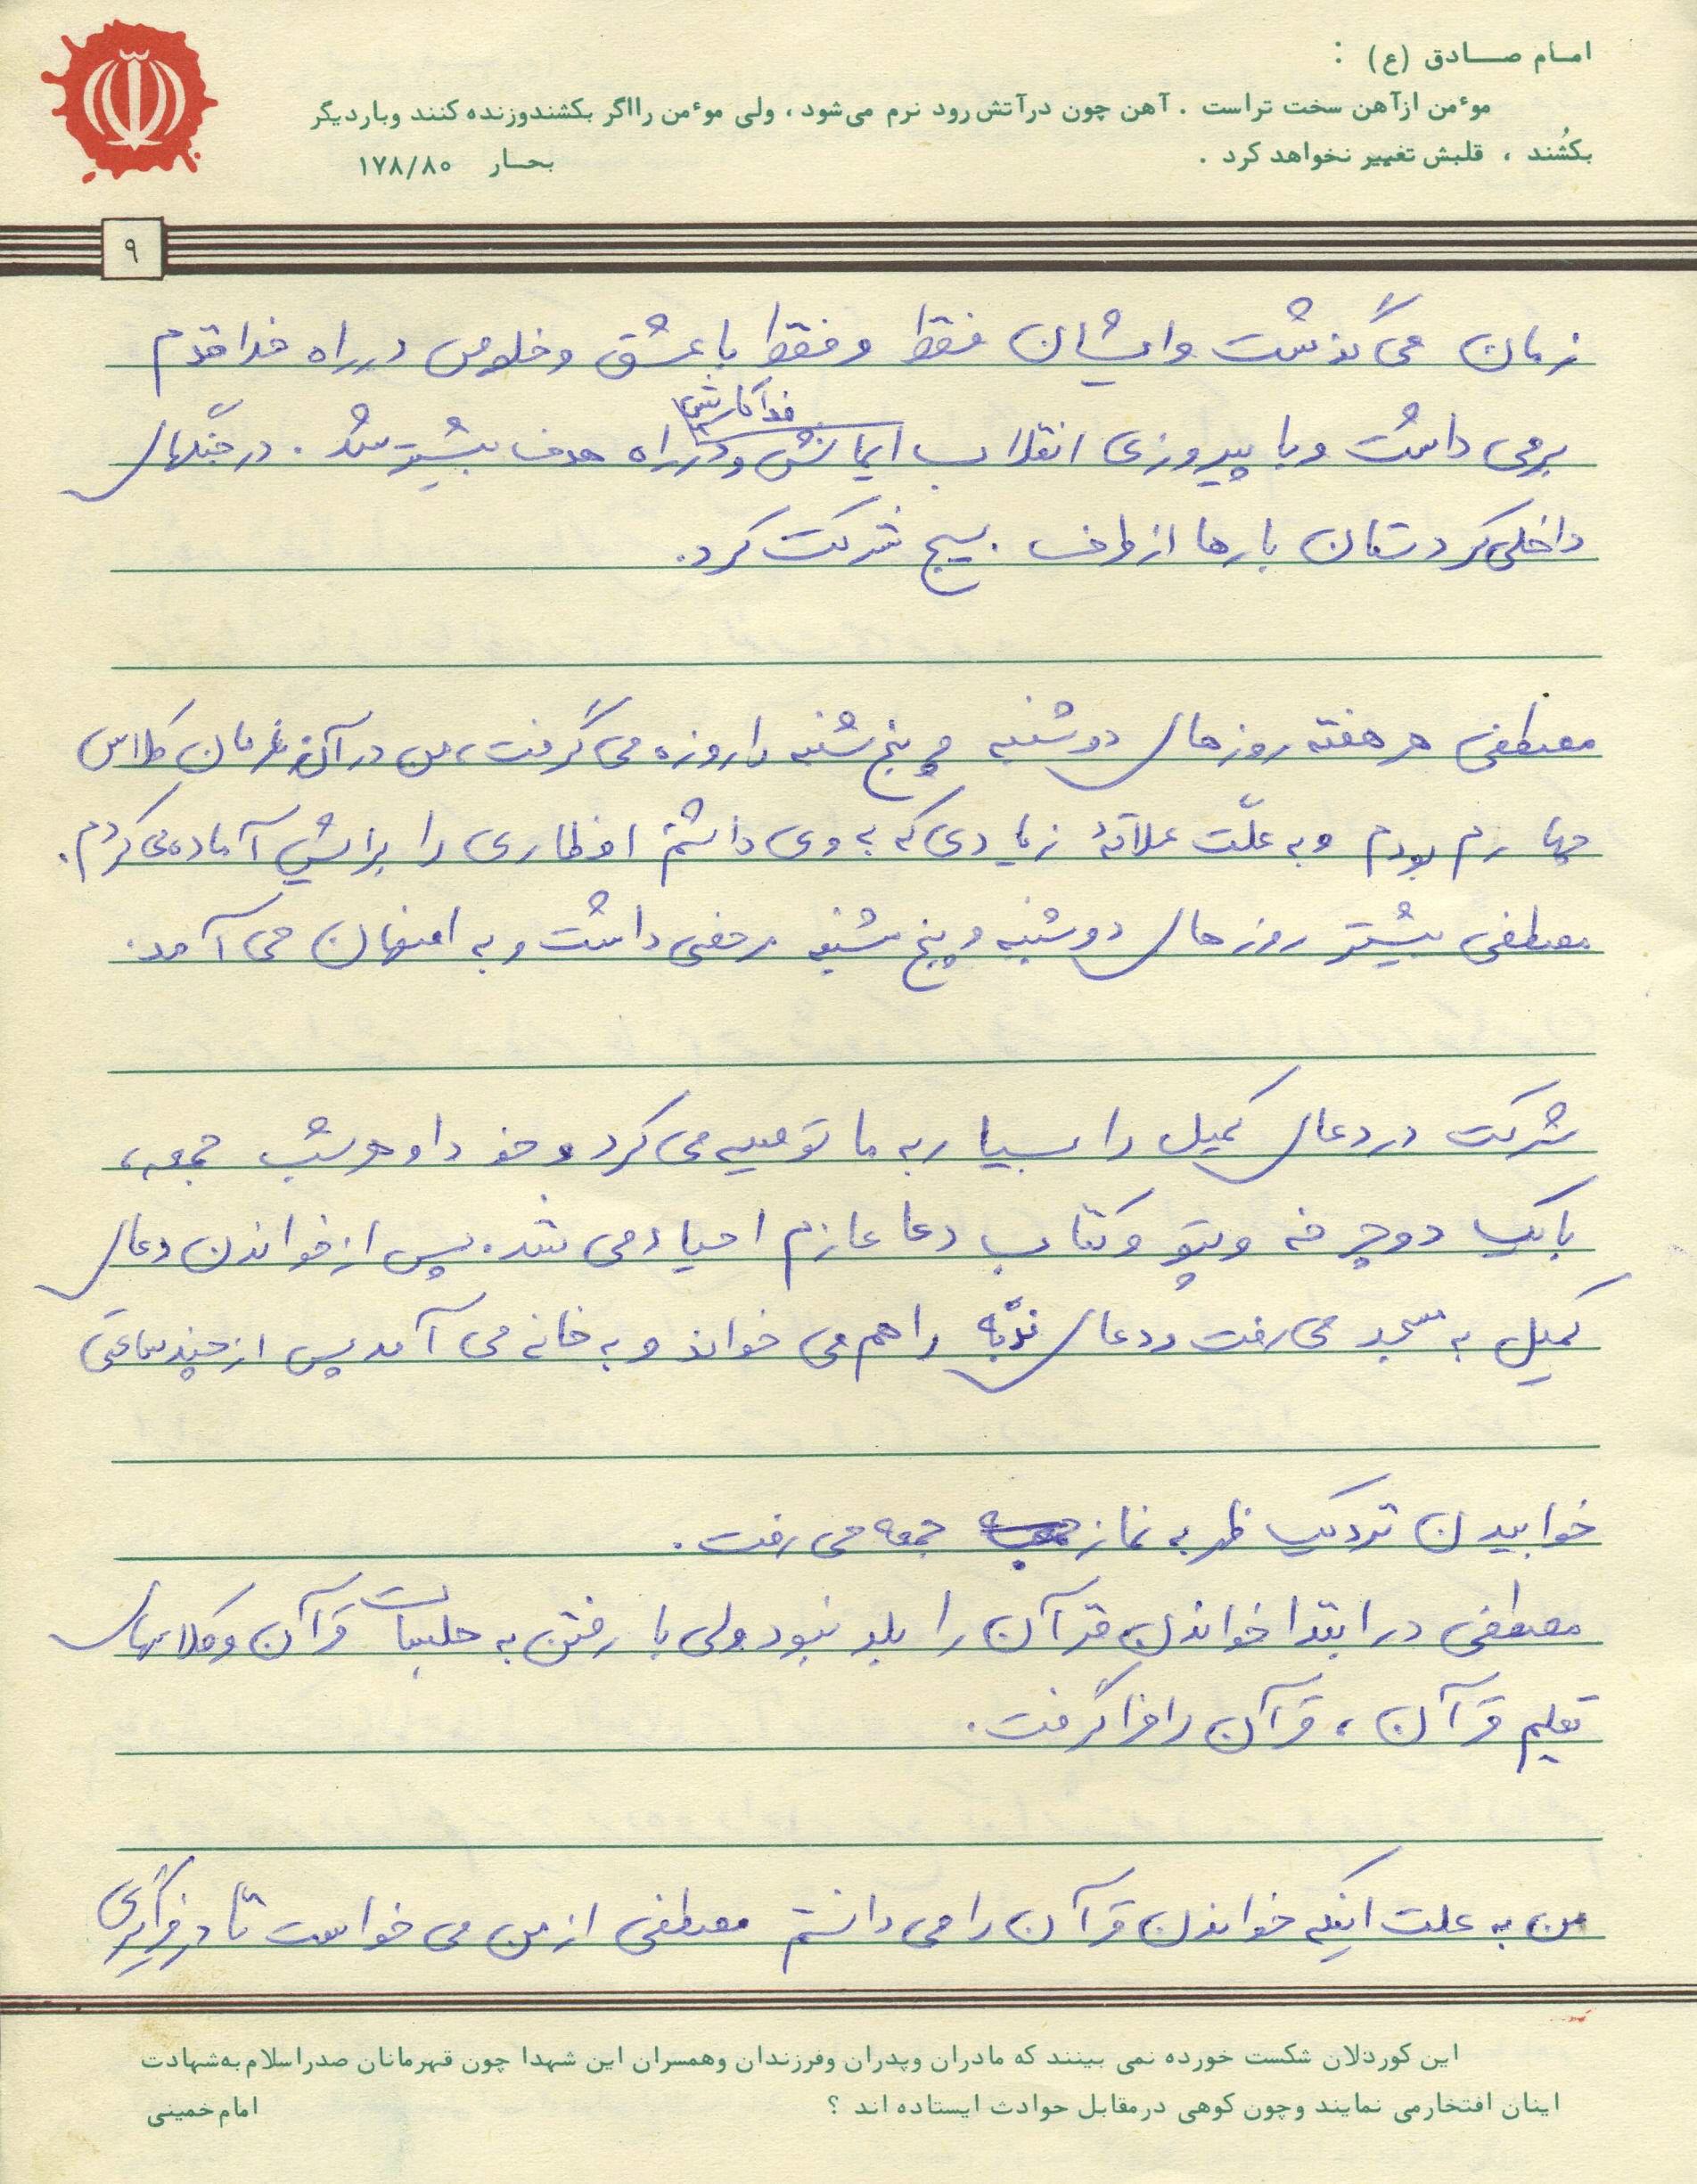 امام صادق (ع) :
موءمن ازآهن سخت تراست . آهن چون درآتش رود نرم می‌شود ، ولی موءمن رااگر بکشندوزنده کنند وباردیگر
بکُشند ، قلبش تغییر نخواهد کرد . بحار ۱۷۸/۸۰
۹
زمان می گذشت وایشان فقط و فقط با عشق و خلوص در راه خدا قدم
فداکاریش
برمی داشت و با پیروزی انقلاب ایمانش و در راه هدف بیشتر شد . در جنگهای
داخلی کردستان بارها از طرف بسیج شرکت کرد.
مصطفی هر هفته روزهای دوشنبه و پنج شنبه را روزه می گرفت، من در آن زمان کلاس
چهارم بودم و به علّت علاقهٔ زیادی که به وی داشتم افطاری را برایش آماده می کردم.
مصطفی بیشتر روزهای دوشنبه و پنج شنبه مرخصی داشت و به اصفهان می آمد.
شرکت در دعای کمیل را بسیار به ما توصیه می کرد و خود او هر شب جمعه،
با یک دوچرخه و پتو و کتاب دعا عازم احیاء می شد. پس از خواندن دعای
کمیل به مسجد می رفت و دعای ندبه را هم می خواند و به خانه می آمد پس از چند ساعتی
خوابیدن نزدیک ظهر به نماز جمعه می رفت.
مصطفی در ابتدا خواندن قرآن را بلد نبود ولی با رفتن به جلسات قرآن و کلاسهای
تعلیم قرآن ، قرآن را فرا گرفت.
من به علت اینکه خواندن قرآن را می دانستم مصطفی از من می خواست تا در فراگیری
این کوردلان شکست خورده نمی بینند که مادران وپدران وفرزندان وهمسران این شهدا چون قهرمانان صدراسلام به‌شهادت
اینان افتخارمی نمایند وچون کوهی درمقابل حوادث ایستاده اند ؟ امام خمینی